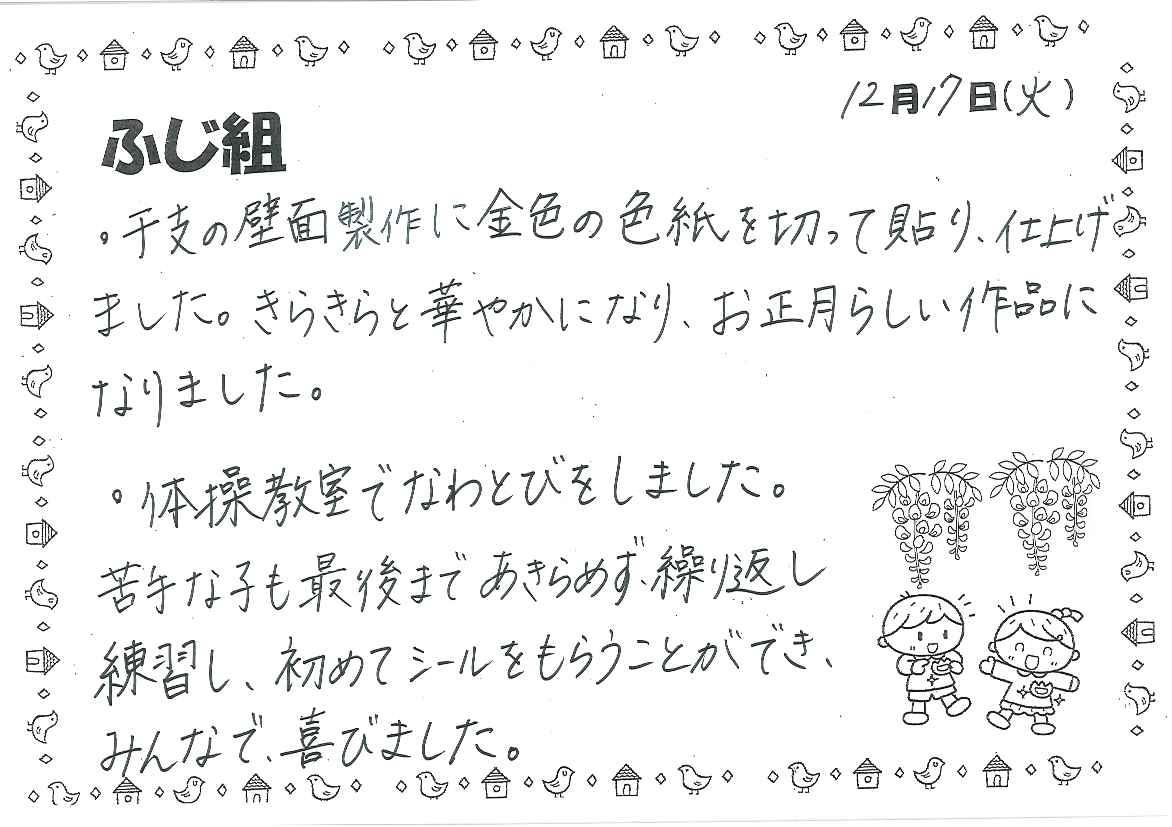 12月17日(火)
ふじ組
。干支の壁面製作に金色の色紙を切って貼り、仕上げ
ました。きらきらと華やかになり、お正月らしい作品に
なりました。
。体操教室でなわとびをしました。
苦手な子も最後まであきらめず、繰り返し
練習し、初めてシールをもらうことができ、
みんなで、喜びました。